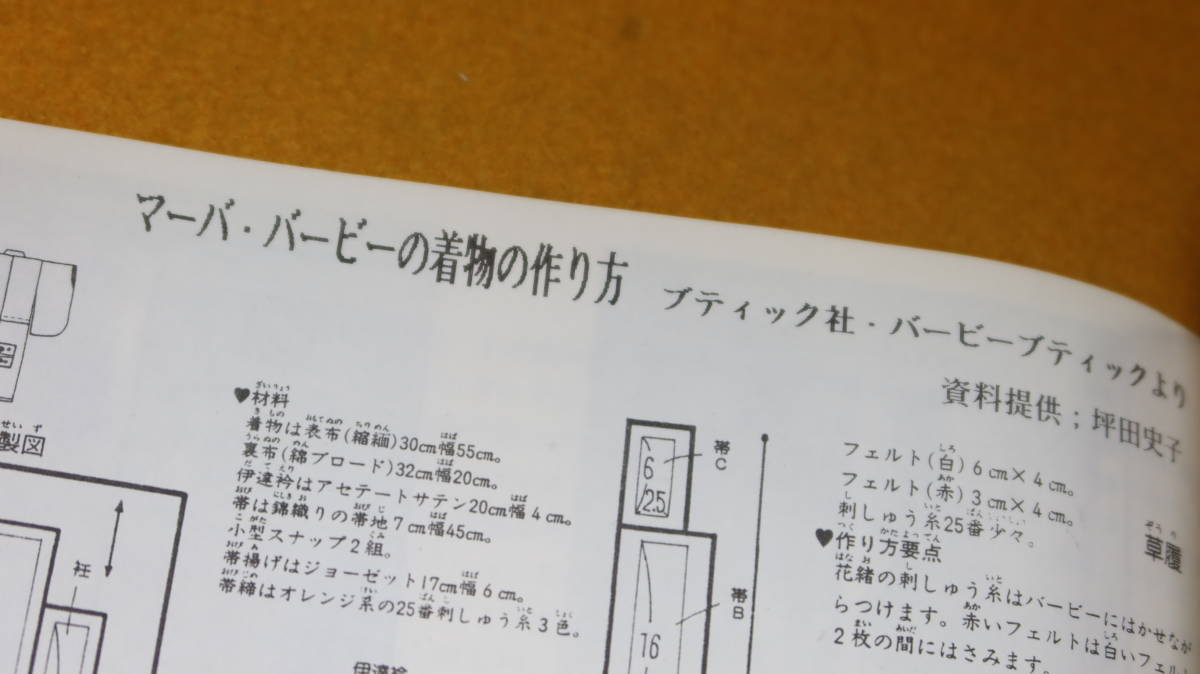 マーバ・バービーの着物の作り方
ブティック社・バービーブティックより
資料提供；坪田史子
製図
衽
♥材料
着物は表布(縮緬)30cm幅55cm。
裏布(綿ブロード)32cm幅20cm。
伊達衿はアセテートサテン20cm幅4cm。
帯は錦織りの帯地7cm幅45cm。
小型スナップ2組。
帯揚げはジョーゼット17cm幅6cm。
帯締はオレンジ系の25番刺しゅう糸3色。
伊達衿
帯C
6
2.5
帯B
16
フェルト(白)6cm×4cm。
フェルト(赤)3cm×4cm。
刺しゅう糸25番少々。
♥作り方要点
花緒の刺しゅう糸はバービーにはかせなが
らつけます。赤いフェルトは白いフェル
2枚の間にはさみます。
草履